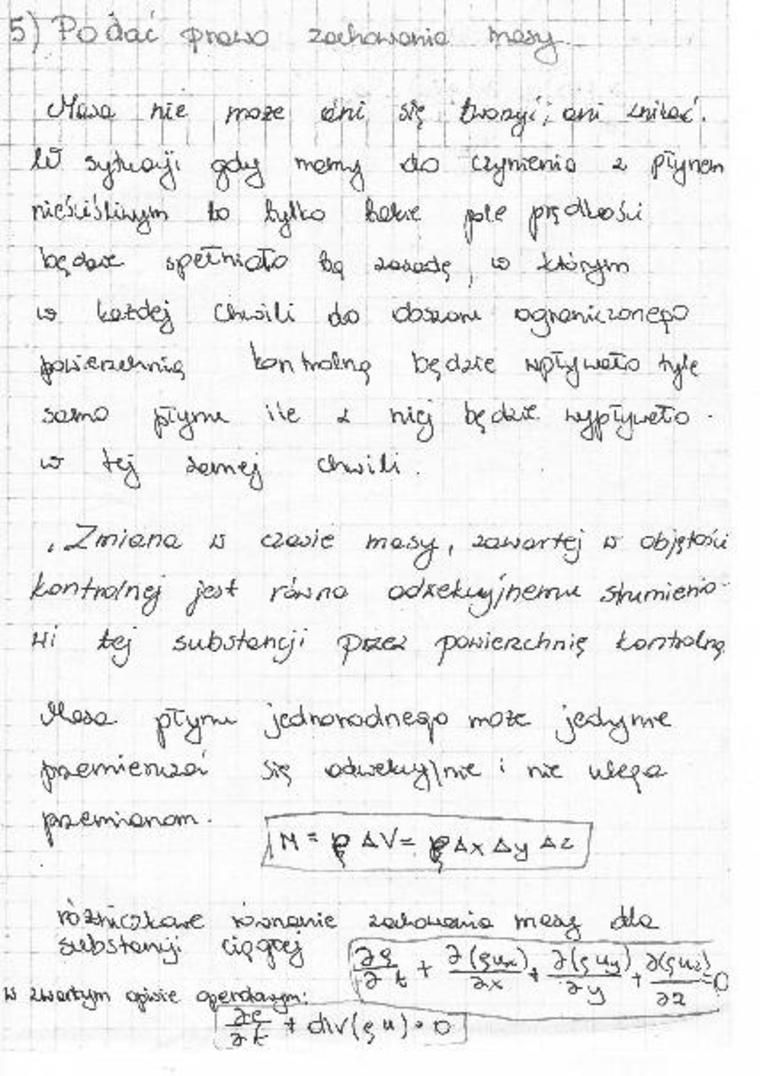 5) Podać prawo zachowania masy
Masa nie może ani się tworzyć, ani znikać.
W sytuacji gdy mamy do czynienia z płynem
nieściśliwym to tylko takie pole prędkości
będzie spełniało tą zasadę, w którym
w każdej chwili do obszaru ograniczonego
powierzchnią kontrolną będzie wpływało tyle
samo płynu ile z niej będzie wypływało
w tej samej chwili.
Zmiana w czasie masy, zawartej w objętości
kontrolnej jest równa adwekcyjnemu strumienio-
wi tej substancji przez powierzchnię kontrolną
Masa płynu jednorodnego może jedynie
przemieszczać się adwekcyjnie i nie ulega
przemianom.
M = ρ ΔV = ρ Δx Δy Δz
różniczkowe równanie zachowania masy dla
substancji ciągłej ∂ρ/∂t + ∂(ρux)/∂x + ∂(ρuy)/∂y + ∂(ρuz)/∂z = 0
w zwartym opisie operatorowym:
∂ρ/∂t + div(ρu) = 0